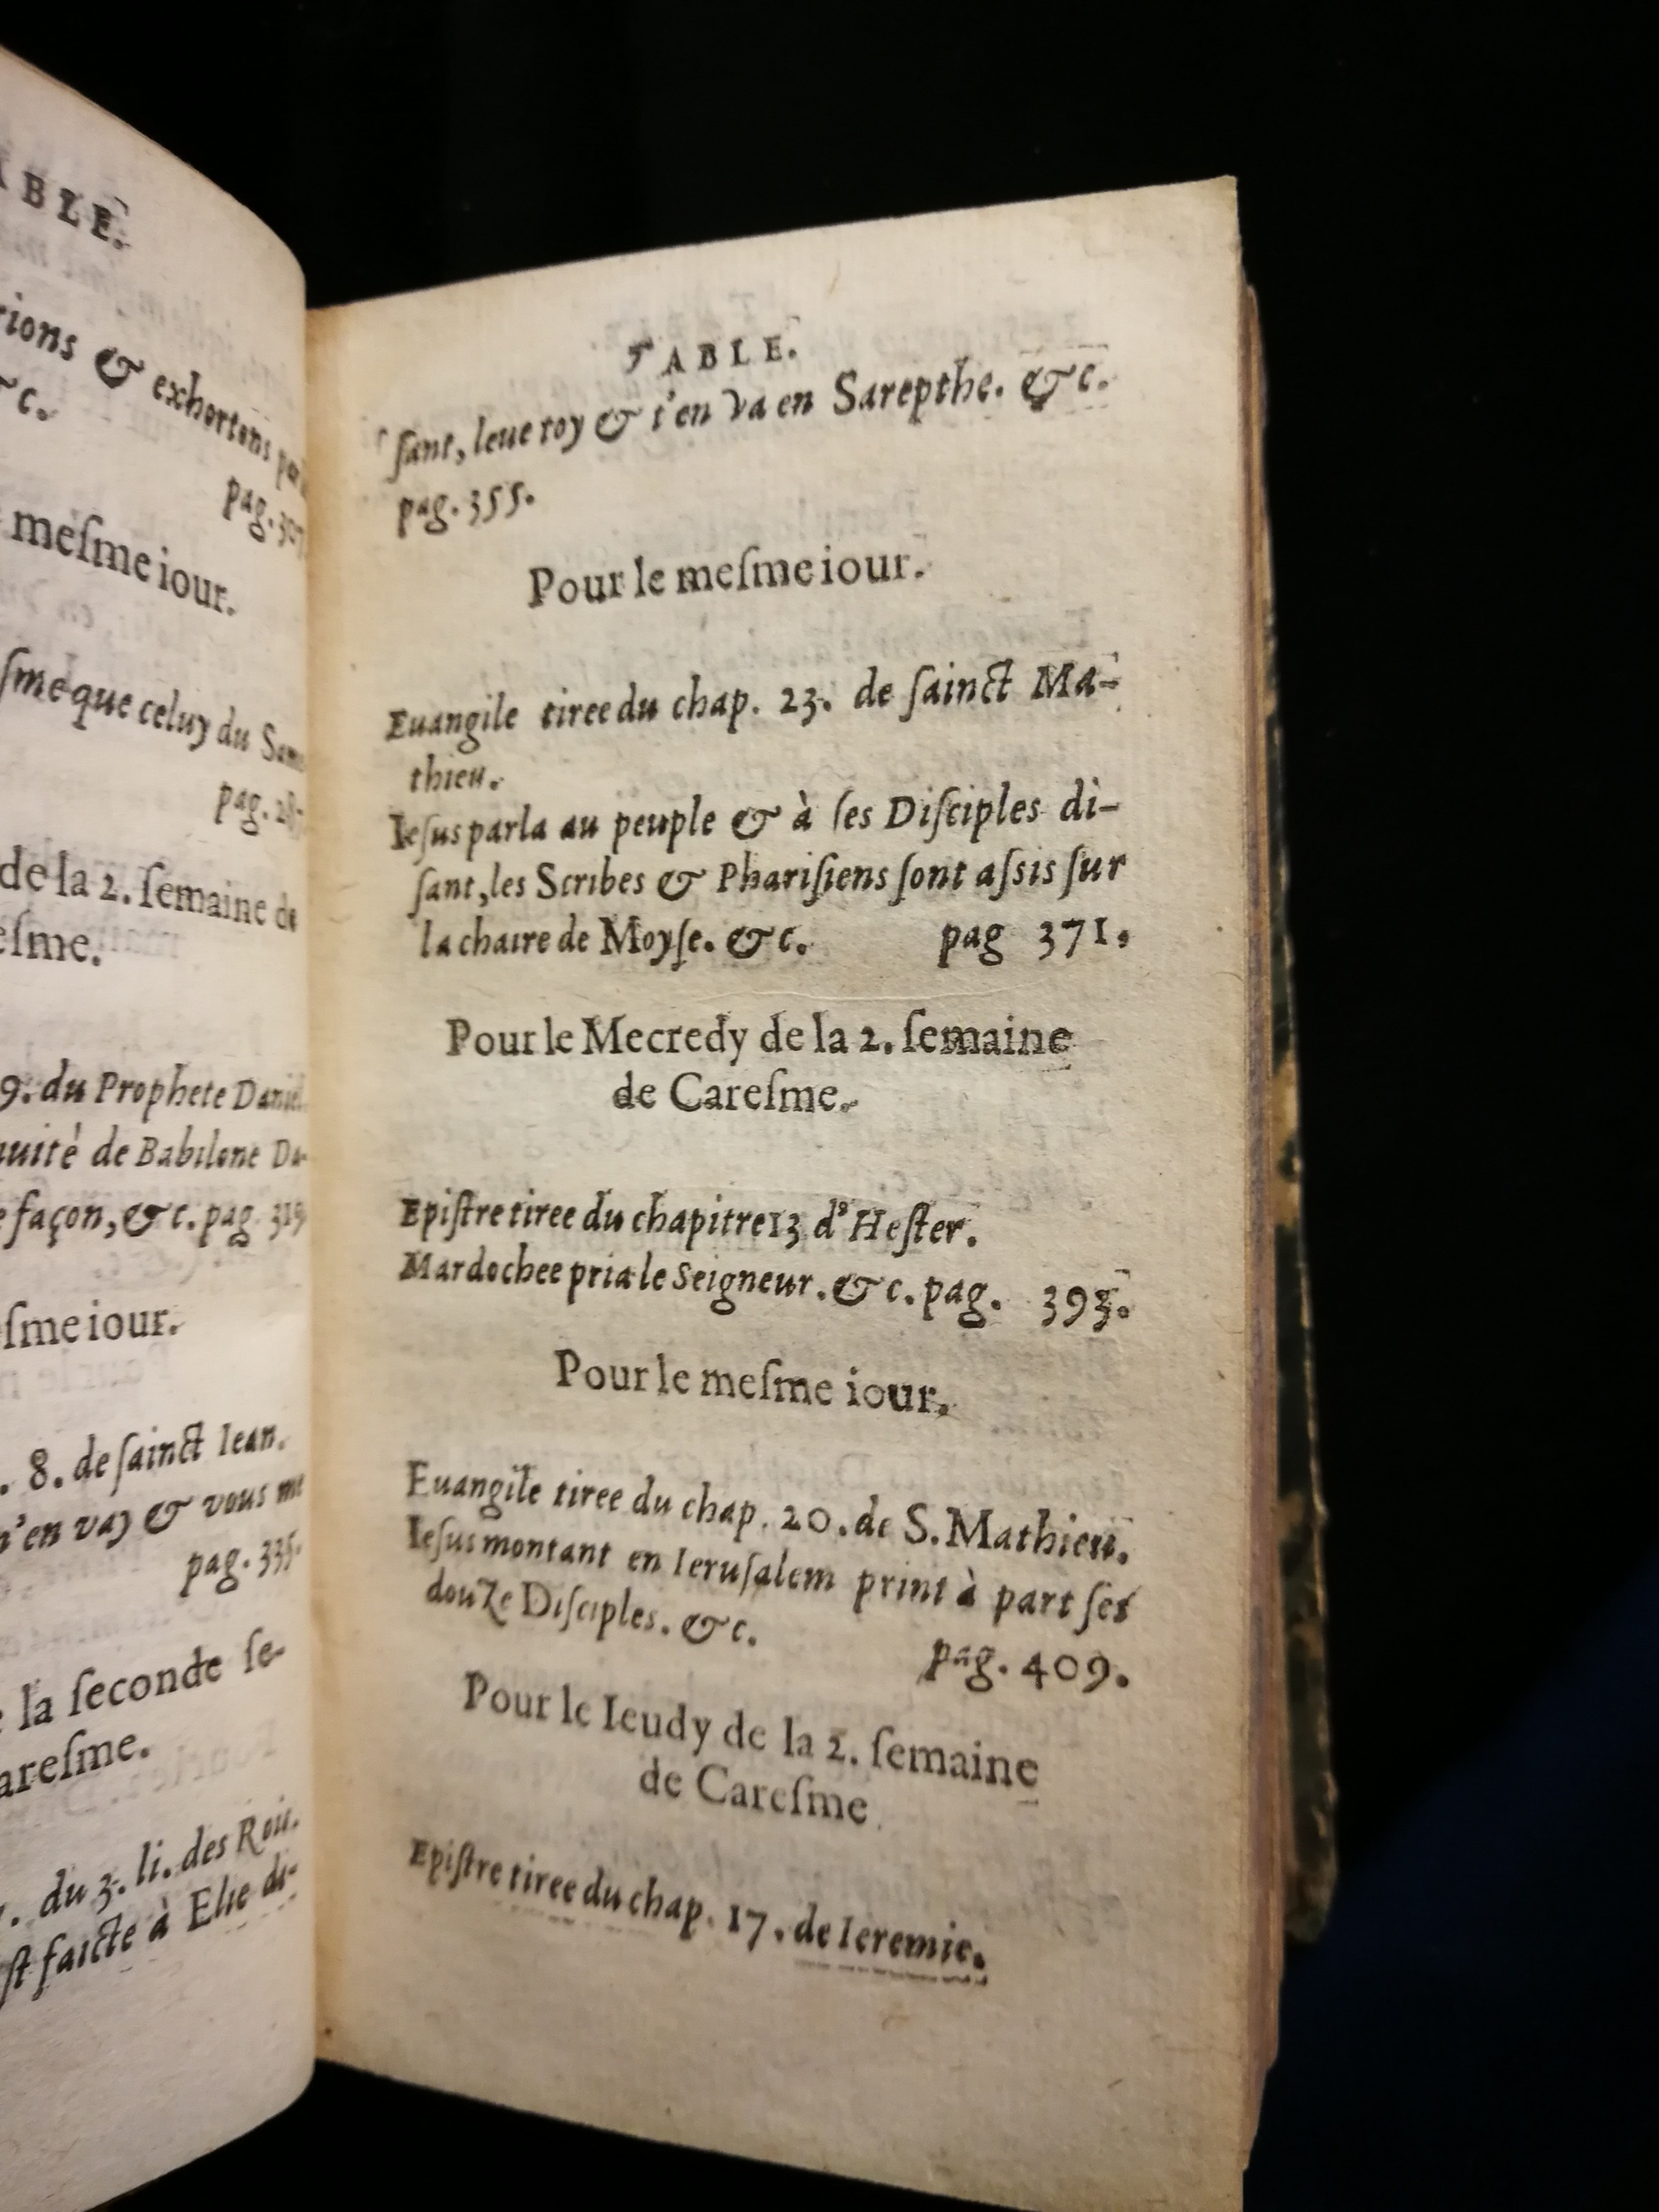 ABLE.
rions & exhortons
&c.
pag.
mesme iour.
sme que celuy du
pag.
de la 2. semaine de
esme.
9. du Prophete Daniel
uité de Babilone Da-
façon, &c. pag. 319
sme iour.
. 8. de sainct Iean.
m'en vay & vous me
pag. 335.
la seconde se-
aresme.
. du 3. li. des Rois.
st faicte à Elie di-
TABLE.
sant, leue toy & t'en va en Sarepthe. &c.
pag. 355.
Pour le mesme iour.
Euangile tiree du chap. 23. de sainct Ma-
thieu.
Iesus parla au peuple & à ses Disciples di-
sant, les Scribes & Pharisiens sont assis sur
la chaire de Moyse. &c. pag 371.
Pour le Mecredy de la 2. semaine
de Caresme.
Epistre tiree du chapitre 13 d'Hester.
Mardochee pria le Seigneur. &c. pag. 393.
Pour le mesme iour.
Euangile tiree du chap. 20. de S. Mathieu.
Iesus montant en Ierusalem print à part ses
douze Disciples. &c. pag. 409.
Pour le Ieudy de la 2. semaine
de Caresme
Epistre tiree du chap. 17. de Ieremie.